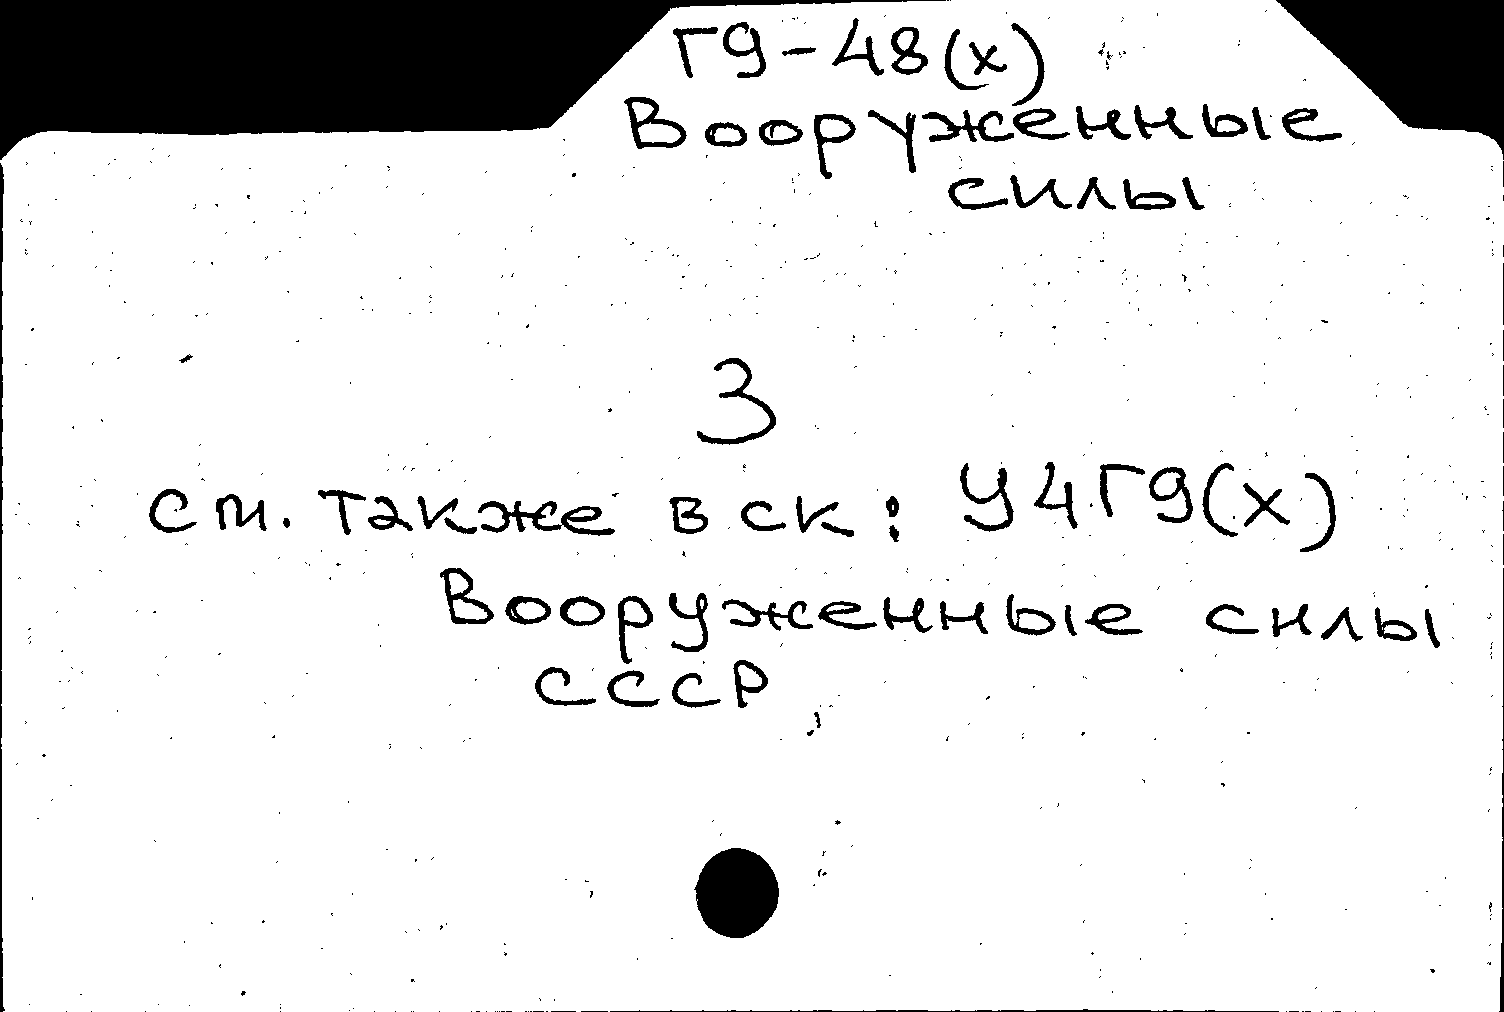 Г9-48(х)
Вооруженные
силы
3
см. также в ск: У4Г9(х)
Вооруженные силы
СССР